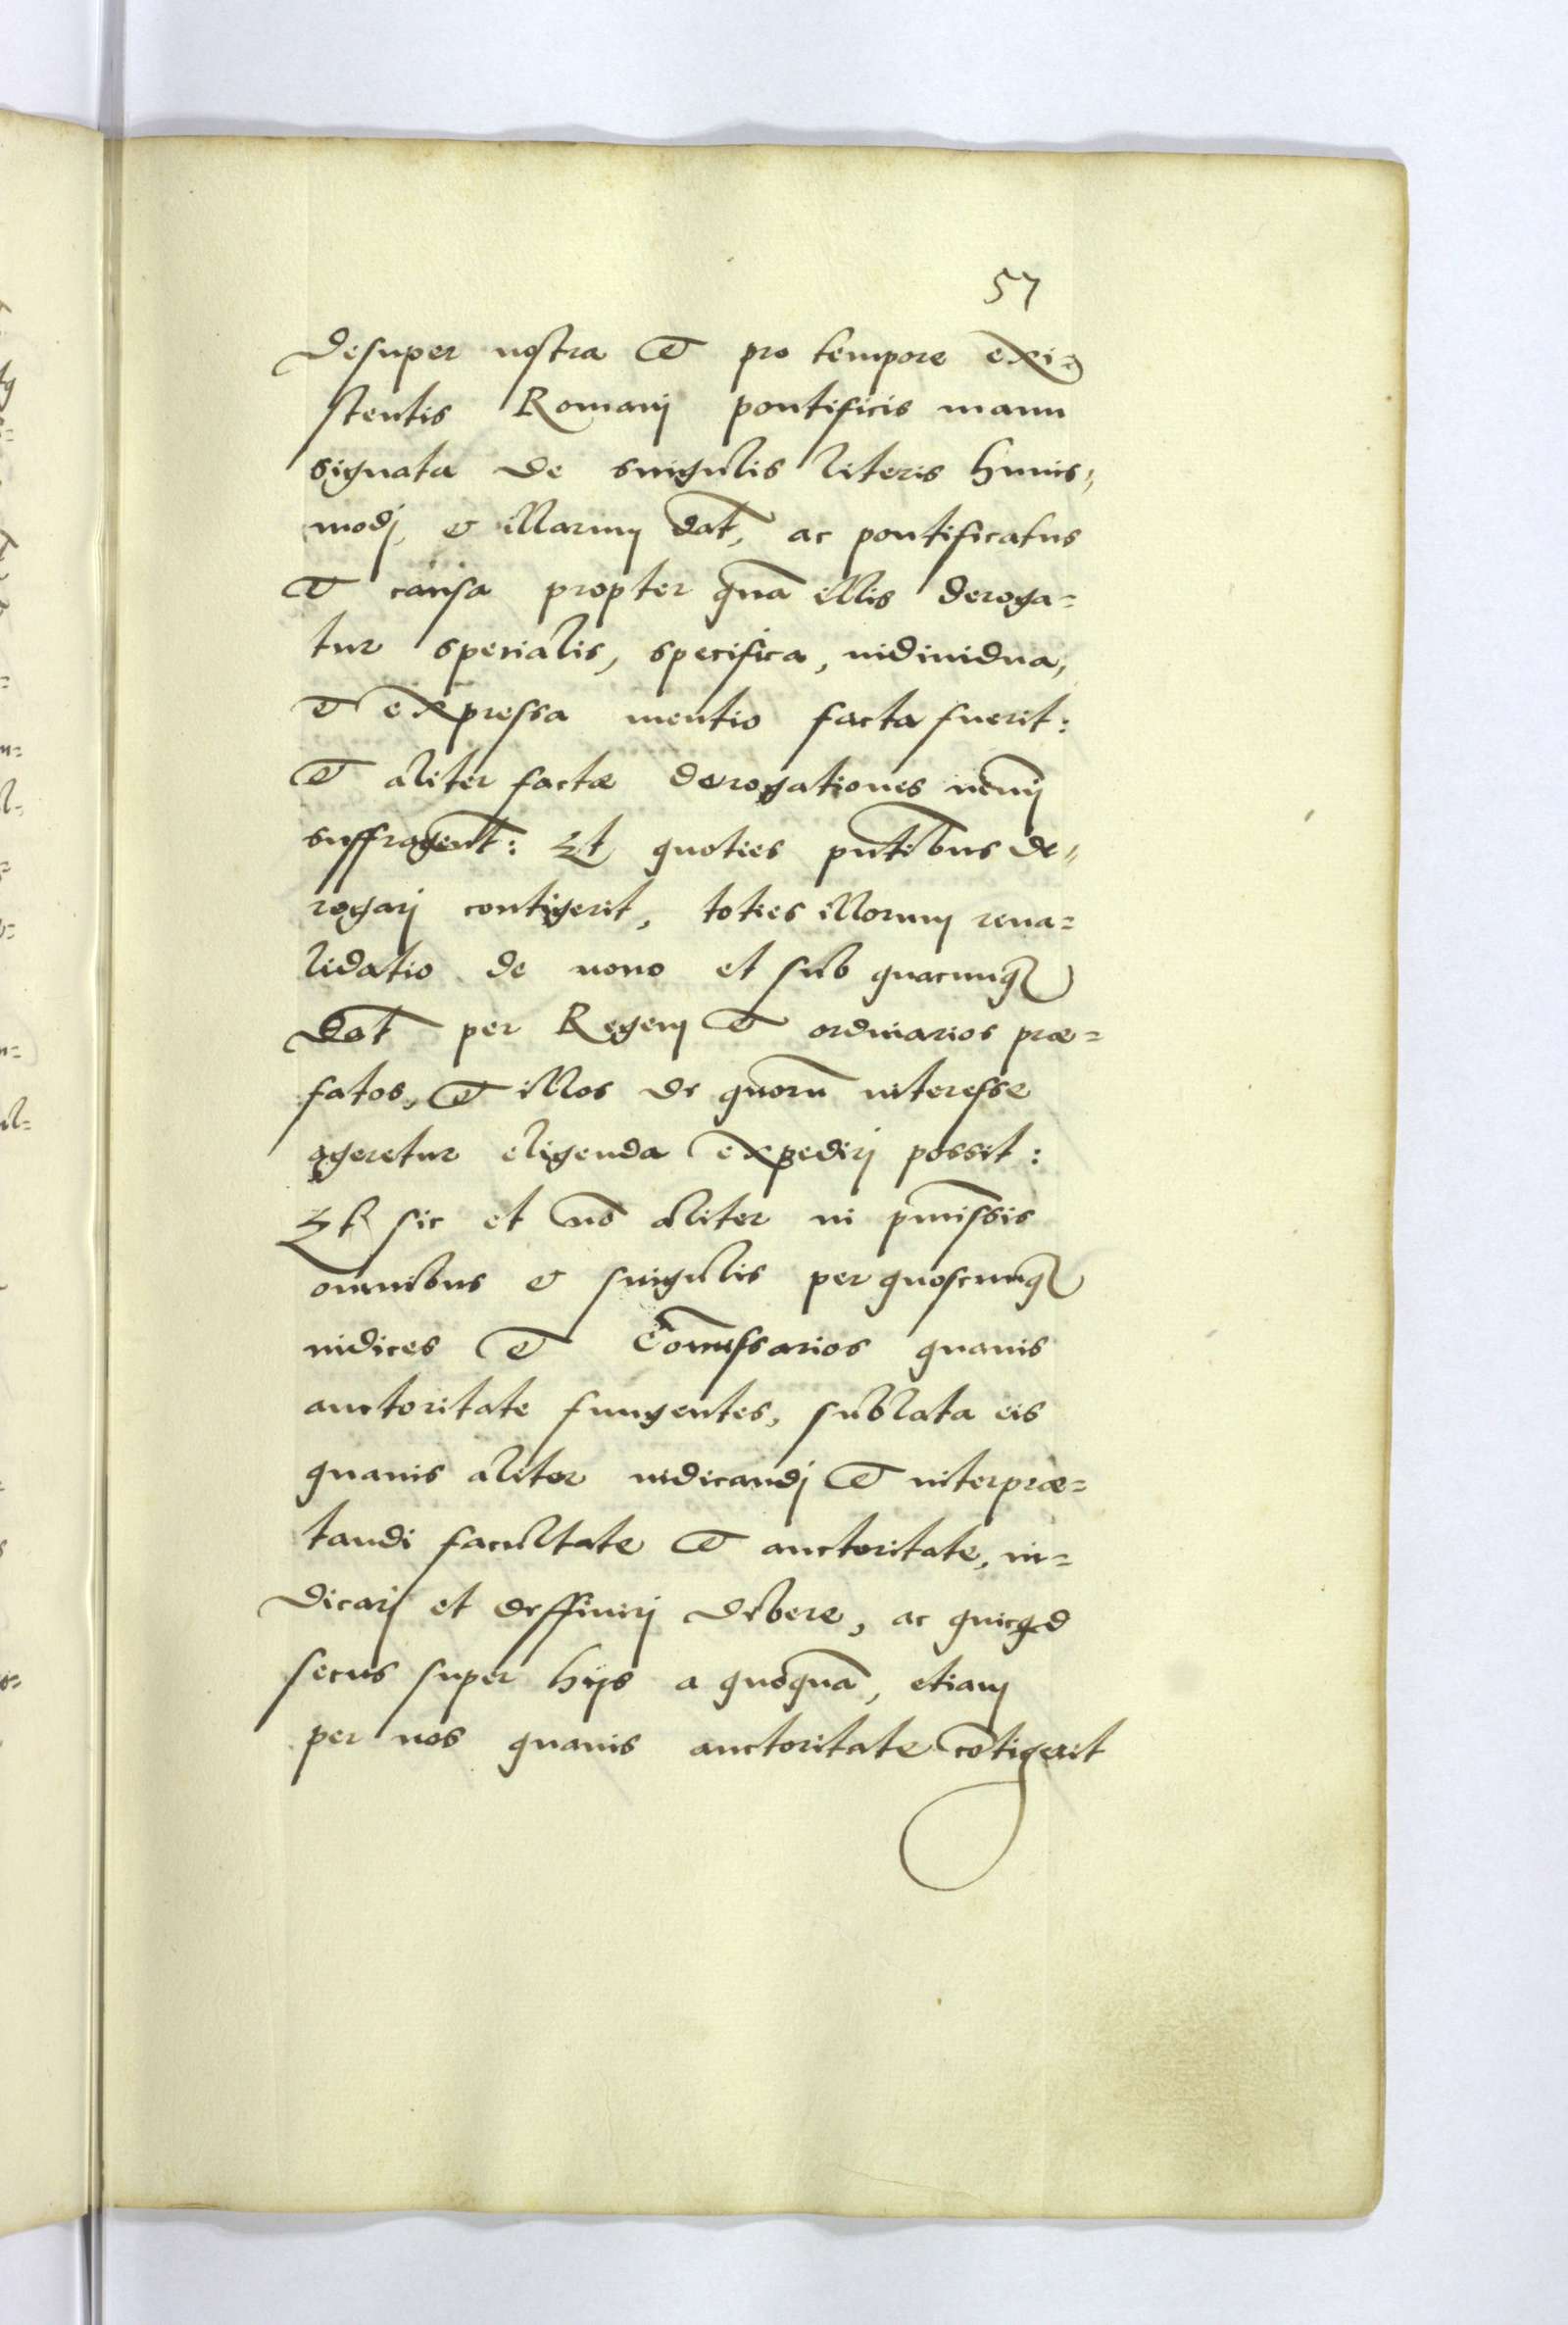 57
desuper nostra et pro tempore exi=
stentis Romanj pontificis manu
signata de singulis literis huius,,
modj, & illarum dat, ac pontificatus
et causa propter quā illis deroga=
tur specialis, specifica, indiuidua,
et expressa mentio facta fuerit:
et aliter factæ derogationes nēmj
suffragent: Et quoties pñtibus de,,
rogarj contigerit, toties illorum reua=
lidatio de nouo et sub quacunq
dat per Regem et ordinarios præ=
fatos, et illos de quorū interesse
ageretur eligenda expedirj possit:
Et sic et nō aliter in pmissis
omnibus & singulis per quoscunq
iudices et Cōmissarios quauis
auctoritate fungentes, sublata eis
quauis aliter iudicandj et interpræ=
tandi facultate et auctoritate, iu=
dicarj et deffinirj debere, ac quicqd
secus super hijs a quoquā, etiam
per nos quauis auctoritate cōtigerit